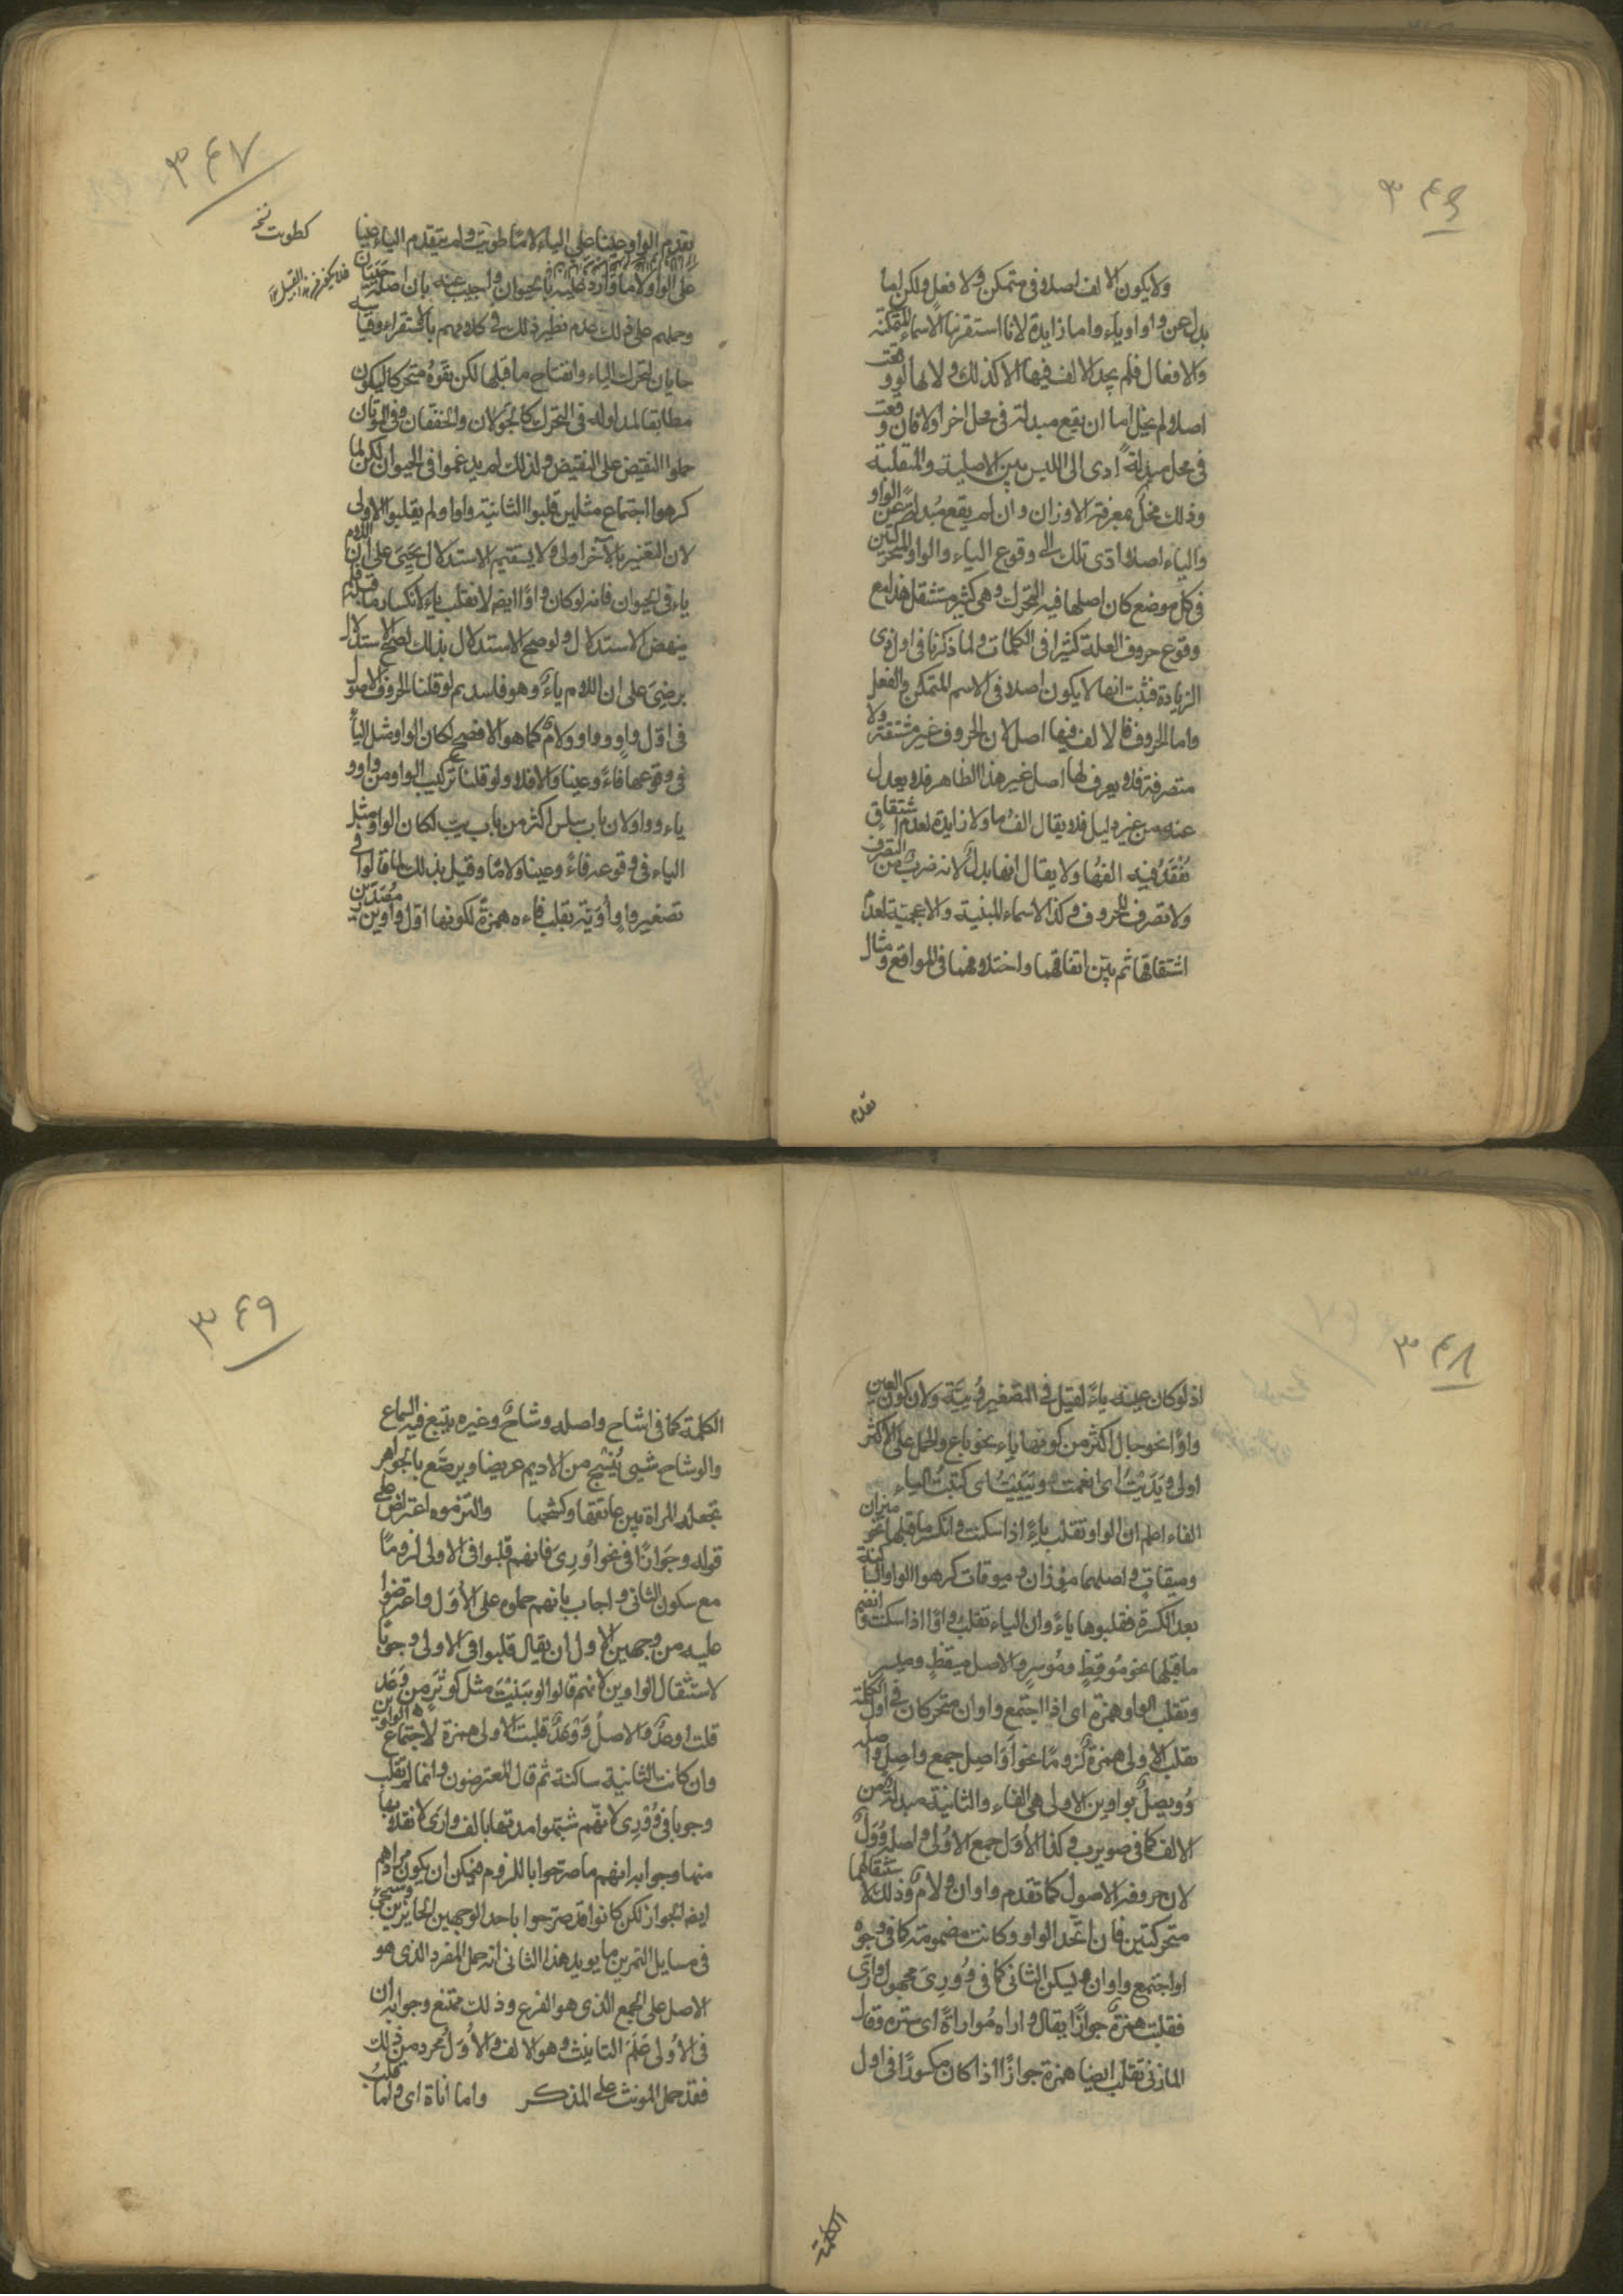 ٣٤٦
ولا يكون الالف اصلا فى متمكن ولا فعل ولكن اما
بدل عن واو او ياء واما زايدة لانا استقرينا الاسماء المتمكنة
والافعال فلم نجد الالف فيها الا كذلك ولانها لو وقعت
اصلا ولم يخل اما ان يقع مبدلة فى محل اخر اولا فان وقعت
فى محل مبدلة ادى الى اللبس بين الاصلية والمنقلبة
وذلك مخل بمعرفة الاوزان وان لم يقع مبدلة عن الواو
والياء اصلا ادى تلك الى وقوع الياء والواو المتحركتين
فى كل موضع كان اصلها فيه التحرك وهى كثير مستثقل هذا مع
وقوع حروف العلة كثيرا فى الكلمات ولما ذكرنا فى اول ذى
الزيادة فثبت انها لا يكون اصلا فى الاسم المتمكن والفعل
واما الحروف فالالف فيها اصل لان الحروف غير مشتقة ولا
متصرفة فلا يعرف لها اصل غير هذا الظاهر فلا يعدل
عنه من غير دليل فلا يقال الف ما ولا زايدة لعدم اشتقاق
نفقد فيه الفها ولا يقال انها بدل لانه ضرب من التصرف
ولا تصرف للحروف وكذا الاسماء المبنية والاعجمية لعدم
اشتقاقها ثم بين اتفاقهما واختلافهما فى المواقع ومثال
تقدم
٣٤٧
كطويت نخه
تقدم الواو عينا على الياء لاما طويت ولم يتقدم الياء عينا
على الواو لاما واورد عليه بالحيوان واجيب عنه بان اصله حييان
وحملهم على ذلك عدم نظير ذلك فى كلامهم بالاستقراء وقياسه
حايان لتحرك الياء وانفتاح ما قبلها لكن بقوه متحركا ليكون
مطابقا لمدلوله فى التحرك كالجولان والخفقان وفى الموتان
حملوا النقيض على النقيض ولذلك لم يدغموا فى الحيوان لكن لما
كرهوا اجتماع مثلين قلبوا الثانية واوا ولم يقلبوا الاولى
لان التغيير بالآخر اولى ولا يستقيم الاستدلال بحيى على ان اللام
ياء فى الحيوان فانه لو كان واوا ايضا لانقلب ياء لانكسار ما قبله فلم
ينهض الاستدلال ولو صح الاستدلال بذلك لصح الاستدلال
برضى على ان اللام ياء وهو فاسد ثم لو قلنا الحروف الاصول
فى اول واو وواو ولام كما هو الافصح لكان الواو مثل الياء
فى وقوعها فاء وعينا والا فلا ولو قلنا تركيب الواو من واو و
ياء وواو لان باب سلس اكثر من باب ببت لكان الواو مثل
الياء فى وقوعه فاء وعينا ولاما وقيل بذلك لما قالوا فى
تصغير واو أويّة بقلب فاءه همزة لكونها اول واوين مصدرتين
٣٤٨
اذ لو كان عينه ياء لقيل فى التصغير وييّة ولان كون العين
واوا نحو جال اكثر من كونها ياء نحو باع والحمل على الاكثر
اولى ويديت اى انعمت وييّيت اى كتبت الياء
الفاء اعلم ان الواو تقلب ياء اذا سكنت وانكسر ما قبلها نحو ميزان
وميقات واصلهما موزان وموقات كرهوا الواو الساكنة
بعد الكسرة فقلبوها ياء وان الياء تقلب واوا اذا سكنت وانضم
ما قبلها نحو موقظ وموسر والاصل ميقظ وميسر
وتقلب الواو همزة اى اذا اجتمع واوان متحركان فى اول الكلمة
تقلب الاولى همزة لزوما نحو اواصل جمع واصل واصله
وويصل بواوين الاولى هى الفاء والثانية مبدلة من
الالف كما فى ضويرب وكذا الأول جمع الاولى واصله وول
لان حروفه الاصول كما تقدم واوان ولام وذلك لاستثقالهما
متحركتين فان اتحد الواو وكانت مضمومة كما فى وجوه
او اجتمع واوان وليسكن الثانى كما فى وورى مجهول وارى
فقلبت همزة جوازا يقال واراه مواراة اى ستره وقال
المازنى تقلب ايضا همزة جوازا اذا كان مكسورا فى اول
الكلمة
٣٤٩
الكلمة كما فى اشاح واصله وشاح وغيره يتبع فيه السماع
والوشاح شىء ينسج من الاديم عريضا ويرصّع بالجواهر
تجعله المراة بين عاتقها وكشحها والتزموه اعتراض على
قوله وجوازا فى نحو اورى فانهم قلبوا فى الاولى لزوما
مع سكون الثانى واجاب بانهم حملوه على الأول واعترضوا
عليه من وجهين الاول ان يقال قلبوا فى الاولى وجوبا
لاستثقال الواوين لانهم قالوا لو بنيت مثل كوثر من وعد
قلت اوعد والاصل ووعد قلبت الاولى همزة لاجتماع الواوين
وان كانت الثانية ساكنة ثم قال المعترضون وانما لم تقلب
وجوبا فى وورى لانهم شبهوا مدتها بالف وارى لانقلابها
منها وجوابه انهم ما صرحوا باللزوم فيمكن ان يكون مرادهم
ايضا الجواز لكن كانوا قد صرحوا باحد الوجهين الجايزين وسيجىء
فى مسايل التمرين ما يويد هذا الثانى انه حمل المفرد الذى هو
الاصل على الجمع الذى هو الفرع وذلك ممتنع وجوابه ان
فى الأولى علم التانيث وهو الالف والأول مجرد من ذلك
فقد حمل المونث على المذكر واما اناة اى ولما قلب